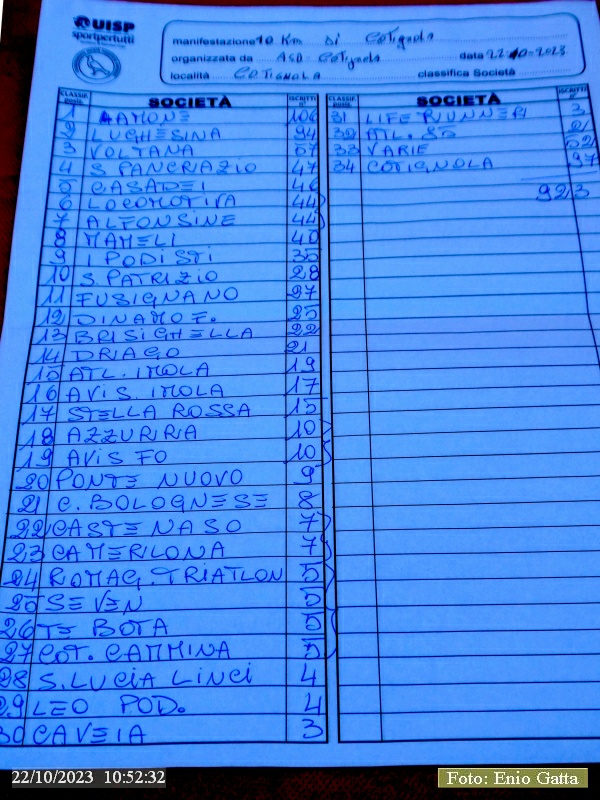 UISP
sportpertutti
manifestazione 10 Km Di Cotignola
organizzata da ASD Cotignola data 22-10-2023
località COTIGNOLA classifica Società
CLASSIF. SOCIETÀ ISCRITTI n°
1 LAMONE 106
2 LUGHESINA 94
3 VOLTANA 67
4 S. PANCRAZIO 47
5 CASADEI 46
6 LOCOMOTIVA 44
7 ALFONSINE 44
8 MAMELI 40
9 I PODISTI 35
10 S. PATRIZIO 28
11 FUSIGNANO 27
12 DINAMO F. 25
13 BRISIGHELLA 22
14 DRAGO 21
15 ATL. IMOLA 19
16 AVIS. IMOLA 17
17 STELLA ROSSA 15
18 AZZURRA 10
19 AVIS FO 10
20 PONTE NUOVO 9
21 C. BOLOGNESE 8
22 CASTENASO 7
23 CAMERLONA 7
24 ROMAG. TRIATLON 5
25 SEVEN 5
26 TE BOTA 5
27 COT. CAMMINA 5
28 S. LUCIA LINCI 4
29 LEO POD. 4
30 CAVEIA 3
CLASSIF. SOCIETÀ ISCRITTI n°
31 LIFE RUNNER 3
32 ATL. 85 2
33 VARIE 52
34 COTIGNOLA 97
923
22/10/2023 10:52:32
Foto: Enio Gatta